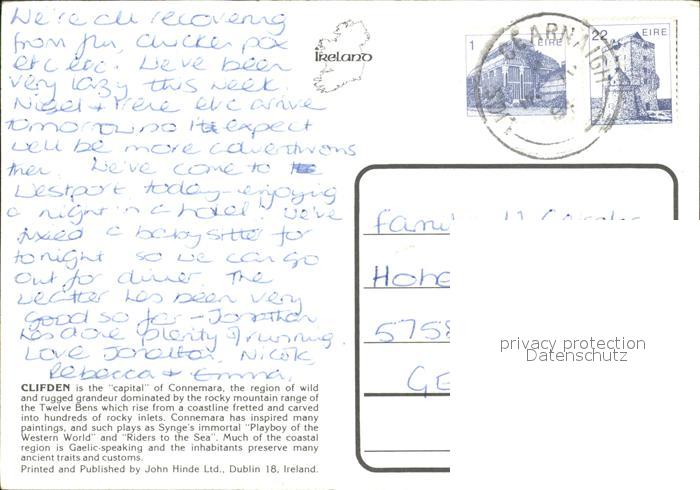 We're all recovering
from flu, chicken pox
etc etc. We've been
very lazy this week.
Nigel + Irene etc arrive
tomorrow so I expect
we'll be more adventurous
then. We've come to
Westport today - enjoying
a night in a hotel! We've
fixed a babysitter for
tonight so we can go
out for dinner. The
weather has been very
good so far - Jonathan
has done plenty of running.
Love Jonathan, Nicole,
Rebecca + Emma.
CLIFDEN is the "capital" of Connemara, the region of wild
and rugged grandeur dominated by the rocky mountain range of
the Twelve Bens which rise from a coastline fretted and carved
into hundreds of rocky inlets. Connemara has inspired many
paintings, and such plays as Synge's immortal "Playboy of the
Western World" and "Riders to the Sea". Much of the coastal
region is Gaelic-speaking and the inhabitants preserve many
ancient traits and customs.
Printed and Published by John Hinde Ltd., Dublin 18, Ireland.
Ireland
1 EIRE
22 EIRE
Hohe
575
GE
privacy protection
Datenschutz